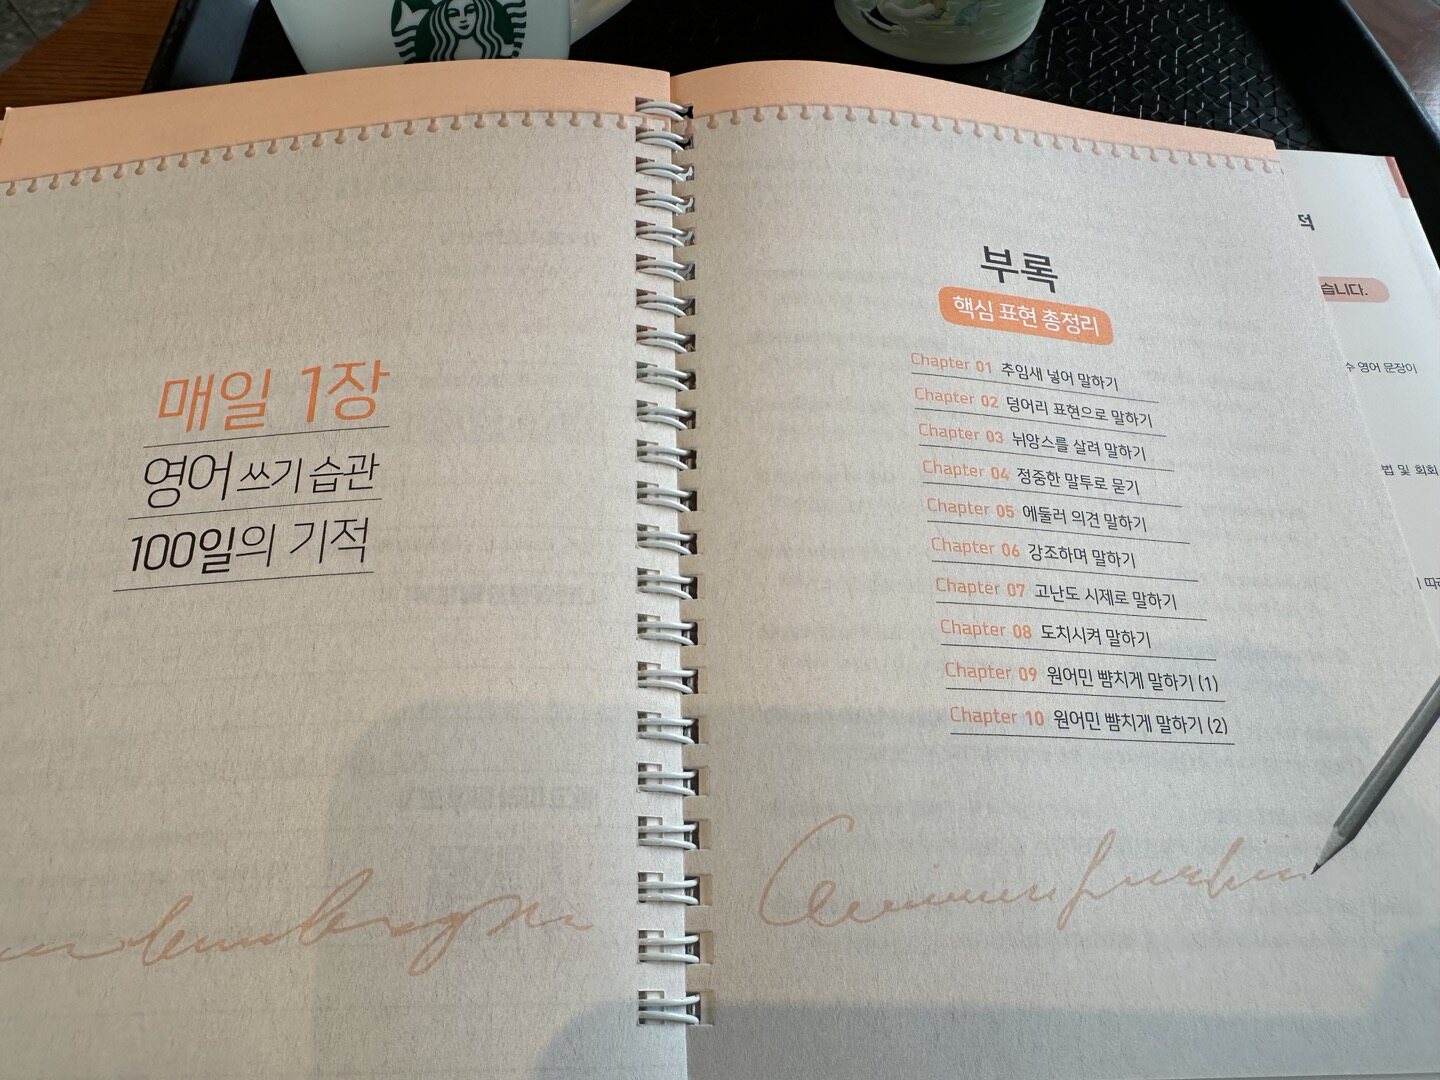 매일 1장
영어 쓰기 습관
100일의 기적
부록
핵심 표현 총정리
Chapter 01 추임새 넣어 말하기
Chapter 02 덩어리 표현으로 말하기
Chapter 03 뉘앙스를 살려 말하기
Chapter 04 정중한 말투로 묻기
Chapter 05 에둘러 의견 말하기
Chapter 06 강조하며 말하기
Chapter 07 고난도 시제로 말하기
Chapter 08 도치시켜 말하기
Chapter 09 원어민 뺨치게 말하기 (1)
Chapter 10 원어민 뺨치게 말하기 (2)
적
습니다.
수 영어 문장이
법 및 회화